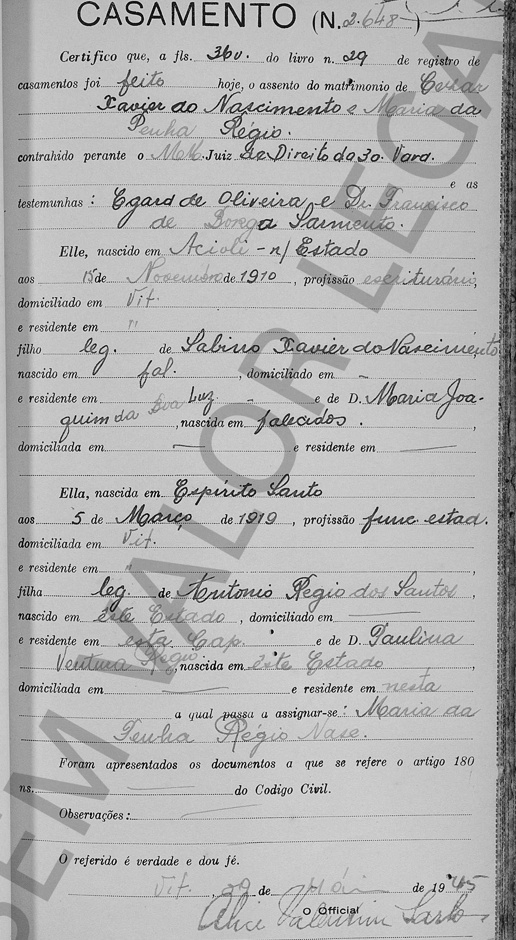 CASAMENTO (N. 2.648)
Certifico que, a fls. 36v. do livro n. 29 de registro de
casamentos foi feito hoje, o assento do matrimonio de Cesar
Xavier do Nascimento e Maria da
Penha Régio.
contrahido perante o MM. Juiz de Direito da 3a. Vara.
e as
testemunhas: Egard de Oliveira e Dr. Francisco
de Borga Sarmento.
Elle, nascido em Acioli - n/ Estado
aos 15 de Novembro de 1910, profissão escriturário,
domiciliado em Vit.
e residente em "
filho leg. de Sabino Xavier do Nascimento
nascido em fal. , domiciliado em -
e residente em - e de D. Maria Joa-
quim da Boa Luz, nascida em falecidos.
domiciliada em — e residente em —
Ella, nascida em Espírito Santo
aos 5 de Março de 1919, profissão func. estad.
domiciliada em Vit.
e residente em "
filha leg. de Antonio Regio dos Santos,
nascido em êste Estado, domiciliado em —
e residente em esta Cap. e de D. Paulina
Ventura Regio, nascida em êste Estado
domiciliada em — e residente em nesta
a qual passa a assignar-se: Maria da
Penha Régio Nasc.
Foram apresentados os documentos a que se refere o artigo 180
ns. — do Codigo Civil.
Observações: —
O referido é verdade e dou fé.
Vit. 29 de de 1945
O Official
Alice Valentim Sarlo
SEM VALOR LEGAL